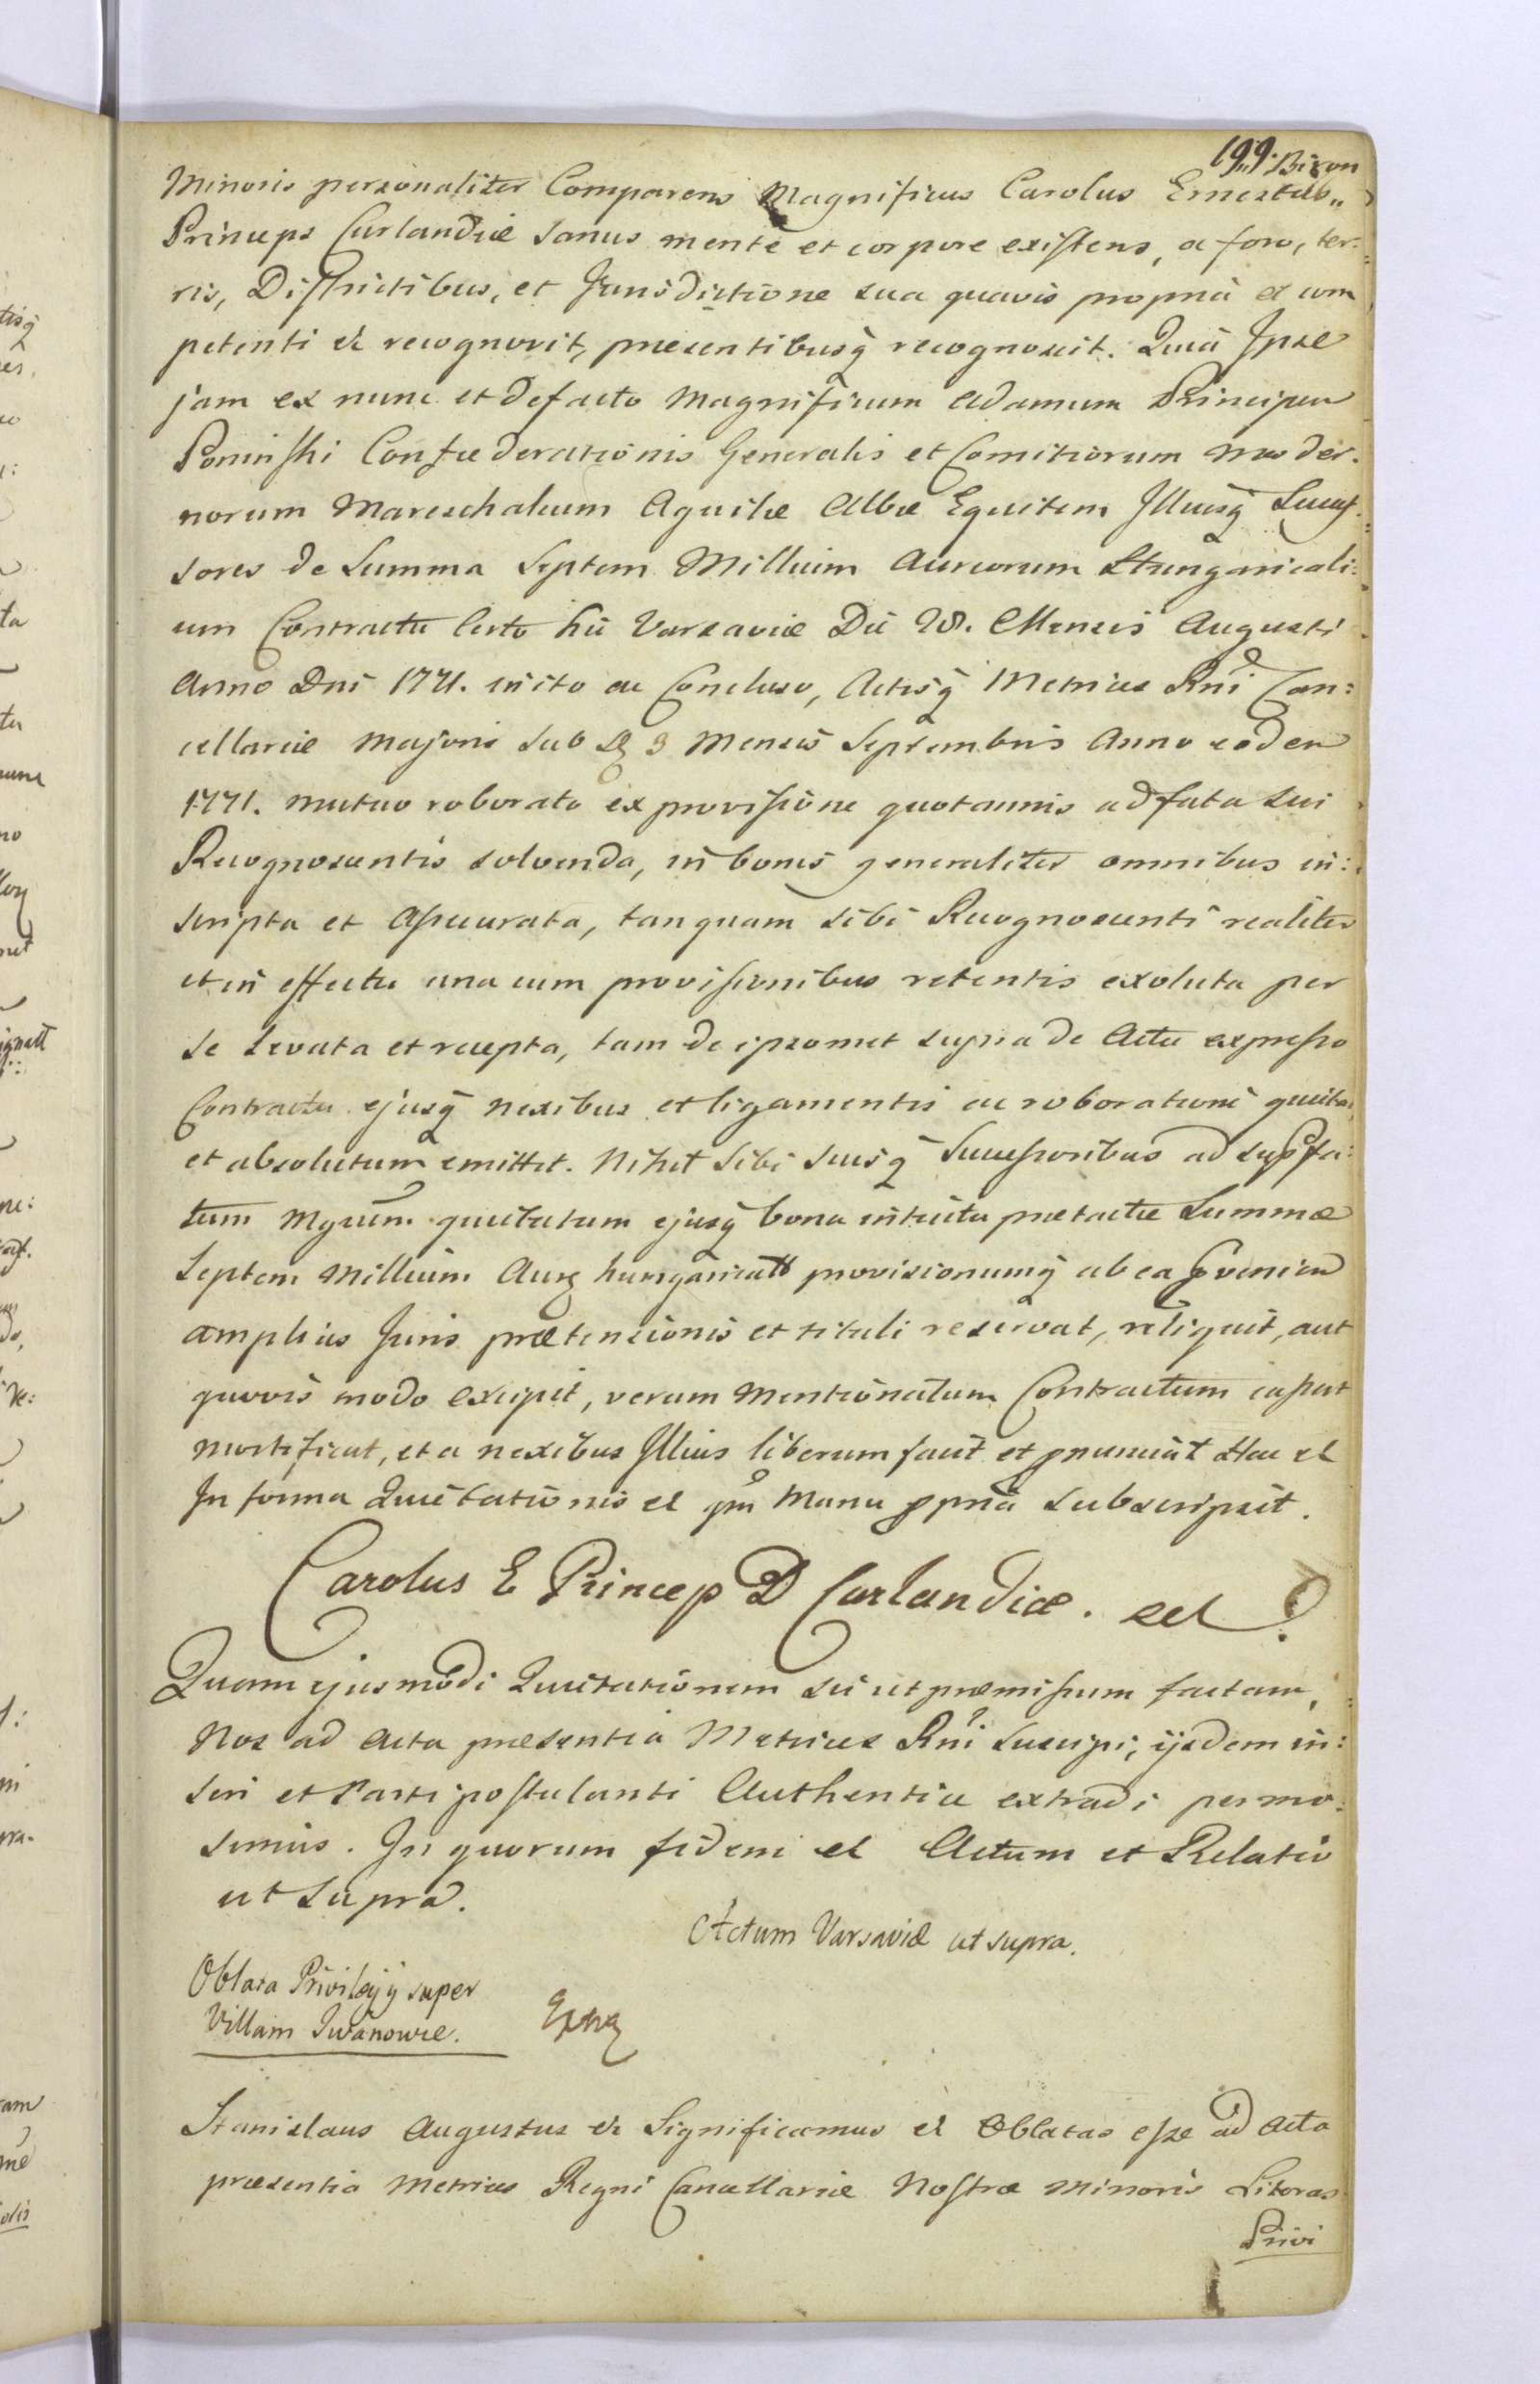 199. Biron
Minoris personaliter Comparens Magnificus Carolus Ernestus „
Princeps Curlandiæ Sanus mente et corpore existens, a foro, ter:
ris, Districtibus, et Jurisdictione sua quavis propria et com
petenti &c recognovit, præsentibusq recognoscit. Quia Ipse
jam ex nunc et de facto Magnificum Adamum Principem
Poninski Confæderationis Generalis et Comitiorum moder:
norum Mareschalcum Aquilæ Albæ Equitem Illiusq Succes:
sores de Summa Septem Millium Aureorum Hungaricali:
um Contractu Certo hic Varsaviæ Die 28. Mensis Augusti
Anno Dni 1771. inito ac Concluso, Actisq Metrices Rni Can:
cellariæ Majoris sub 3 Mensis Septembris Anno eodem
1771. mutuo roborato ex provisione quotannis ad fata sui
Recognoscentis solvenda, in bonis generaliter omnibus in:
scripta et assecurata, tanquam sibi Recognoscenti realiter
et in effectu una cum provisionibus retentis exoluta per
se levata et recepta, tam de ipsomet supra de Actu expresso
Contractu ejusq nexibus et ligamentis ac roboratione quitat
et absolutum emittit. Nihil sibi suisq Successoribus ad supfa:
tum Mgcum quietatum ejusq bona intuitu prætactæ Summæ
Septem Millium Aur hungarical provisionumq ab ea
amplius Juris prætensionis et tituli reservat, reliquit, aut
quovis modo excipit, verum Mentionatum Contractum cassat
mortificat, et a nexibus Illius liberum facit et pnunciat Hac et
In forma Quietationis et Manu ppria subscripsit.
Carolus E Princep D Curlandiæ.
Quam ejusmodi Quietationem sic ut præmissum factam,
Nos ad Acta præsentia Metrices Rni suscipi, ijsdem in:
seri et Parti postulanti Authentice extradi permi:
simus. In quorum fidem et Actum et Relatio
ut supra.
Actum Varsaviæ ut supra.
Oblata Privilegij super
Villam Iwanowce.
Stanislaus Augustus &c Significamus et Oblatas esse ad Acta
præsentia Metrices Regni Cancellariæ Nostræ Minoris Literas
Privi